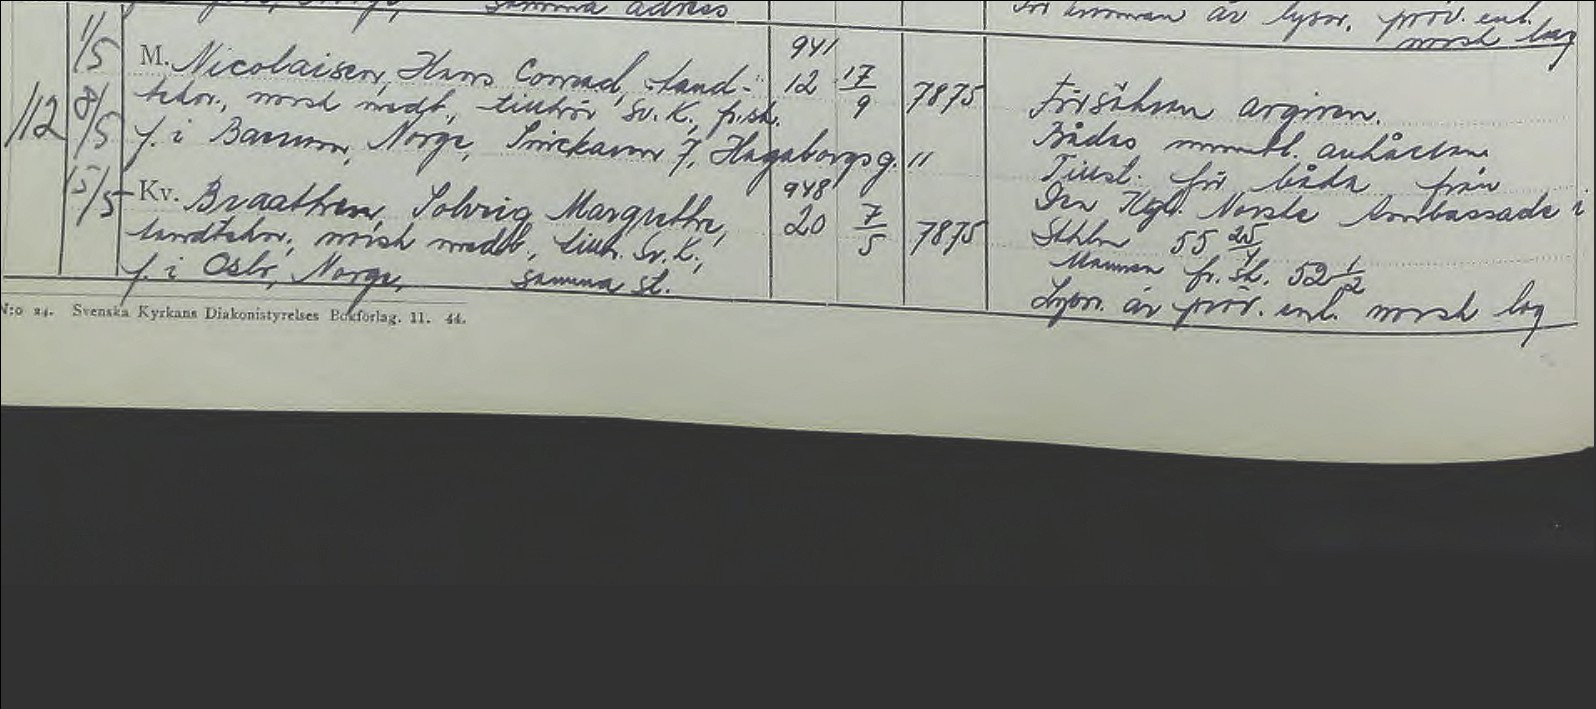 samma adress
är lysn. pröv. enl.
norsk lag
112
1/5
8/5
15/5
M. Nicolaisen, Hans Conrad, tand-
tekn., norsk medb., tillhör Sv. K., fr.sk.
f. i Bærum, Norge, Snickaren 7, Hagaborgsg. 11
941
12 17/9 7875
Kv. Braathen, Solveig Margrethe,
tandtekn., norsk medb., tillh. Sv. K.,
f. i Oslo, Norge, samma st.
948
20 7/5 7875
Försäkran avgiven.
Bådas muntl. anhållan
Tillst. för båda från
Den Kgl. Norske Ambassade i
Sthlm 55 25/4
Mannen fr. sk. 52 1/2
Lysn. är pröv. enl. norsk lag
N:o 24. Svenska Kyrkans Diakonistyrelses Bokförlag. 11. 44.